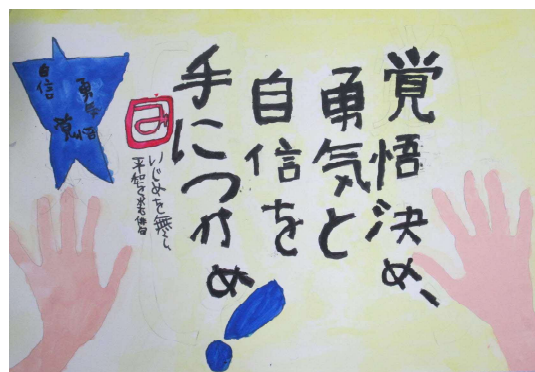 覚悟決め、
勇気と
自信を
手につかめ!
いじめを無くし
平和を求む俳句
自信
勇気
覚悟